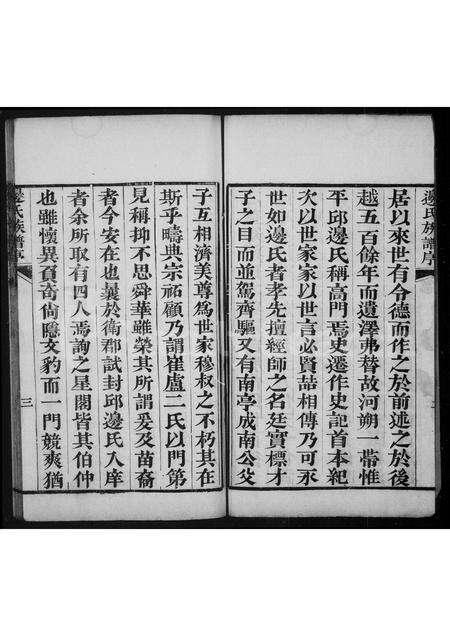 邊氏族譜序
居以來世有令德而作之於前述之於後
越五百餘年而遺澤弗替故河朔一帶惟
平邱邊氏稱高門焉史遷作史記首本紀
次以世家家以世言必賢喆相傳乃可永
世如邊氏者孝先擅經師之名廷實標才
子之目而並駕齊驅又有南亭成南公父
子互相濟美尊爲世家穆叔之不朽其在
斯乎疇典宗祏顧乃謂崔盧二氏以門第
見稱抑不思舜華雖榮其所謂爰及苗裔
者今安在也曩於衛郡試封邱邊氏入庠
者余所取有四人焉詢之星閣皆其伯仲
也雖懷異負奇尙隱文豹而一門競爽猶
邊氏族譜序
三